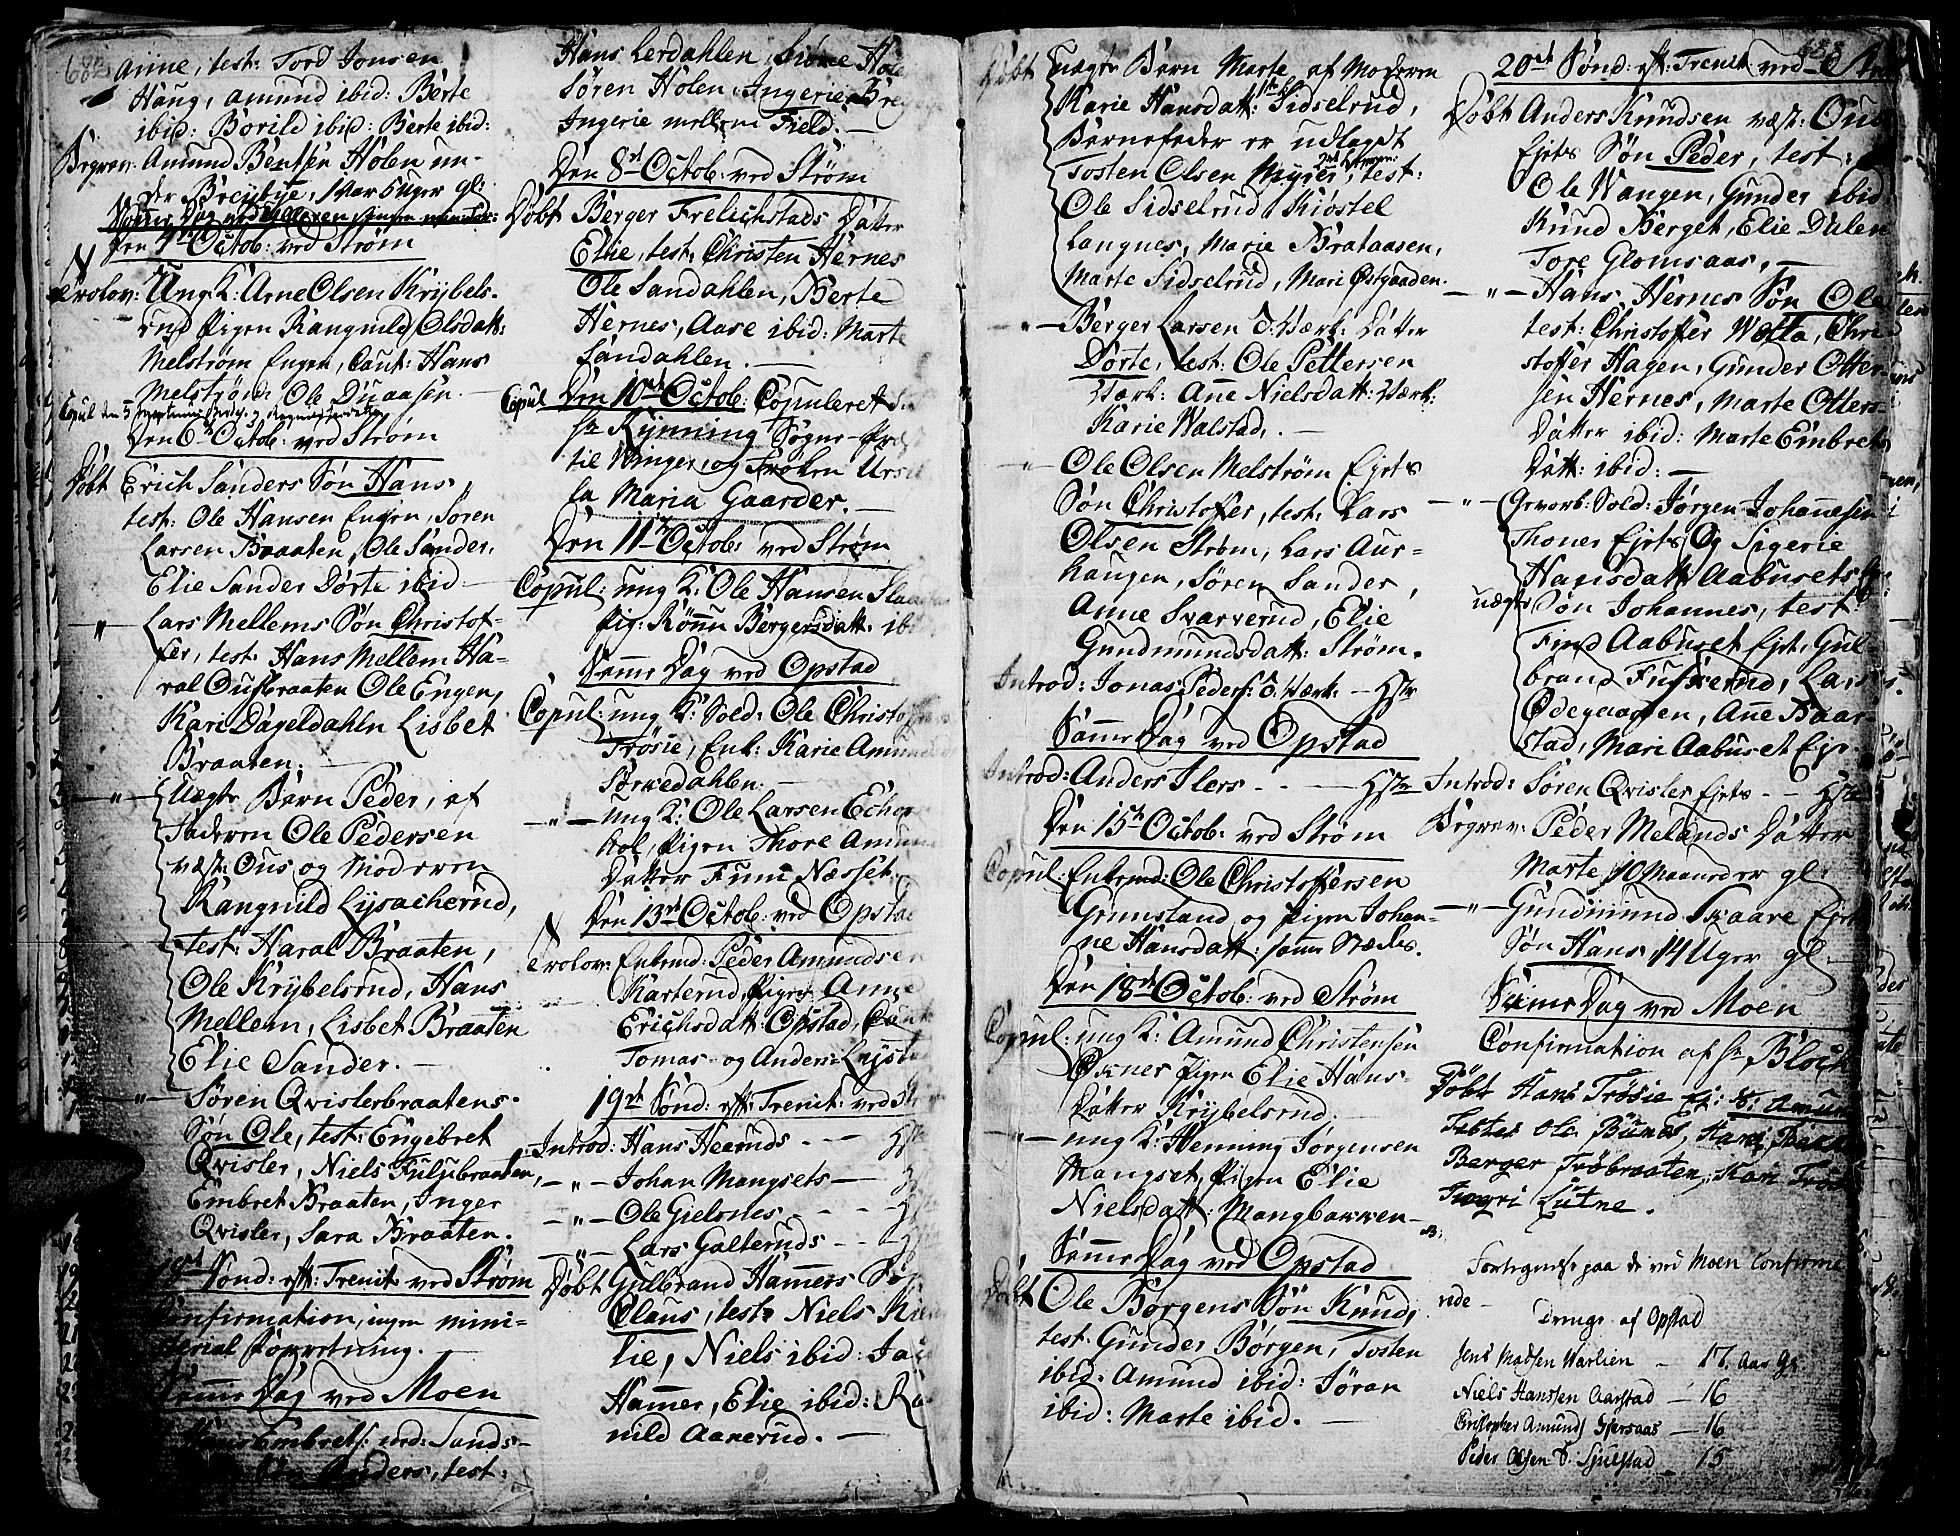 682
Anne, test: Tord Jonsen
Haug, Amund ibid: Berte
ibid: Borild ibid: Berte ibid:
Begrav: Amund Bentsen Holen un-
der Breplye, 1 Aar 5 Uger gl:
Den 4de Octob: ved Strøm
Trolov: Ung K: Arne Olsen Krybels-
rud Pigen Rangnild Olsdatt:
Melstrøm Engen, Caut: Hans
Melstrøm Ole Duaasen.
Copul den 5
Den 6te Octob: ved Strøm
Døbt Erich Sanders Søn Hans,
test: Ole Hansen Engen, Søren
Larsen Braaten, Ole Sander,
Elie Sander Dorte ibid.
—"— Lars Mellems Søn Christof-
fer, test: Hans Mellem Ha-
ral Ousbraaten Ole Engen,
Kari Dageldahln Lisbet
Braaten. —
—"— Uægte Barn Peder, af
Faderen Ole Pedersen
væst: Ous og Moderen
Rangnild Lysacherud,
test: Haral Braaten,
Ole Krybelsrud, Hans
Mellem, Lisbet Braaten
Elie Sander. —
—"— Søren Qvislerbraatens
Søn Ole, test: Engebret
Qvisler, Niels Fulubraaten,
Embret Braaten, Inger
Qvisler, Sara Braaten.
18de Sønd: eft: Trenit: ved Strøm
Confirmation, ingen mini-
sterial Forretning. —
Samme Dag ved Moen
Hans Embrets: ved: Sands-
Søn Anders, test:
Hans Lerdahlen, Siøne Hole
Søren Holen, Ingerie Bre
Ingerie mellem Field. —
Den 8de Octob: ved Strøm
Døbt Berger Frelichstads Datter
Elie, test: Christen Hernes
Ole Sandahlen, Berte
Hernes, Aase ibid: Marte
Sandahlen. —
Copul Den 10de Octob: Copuleret
Hr Rynning Sogne-Præst
til Vinger, og Frøken Ursu
la Maria Gaarder. —
Den 11te Octob: ved Strøm
Copul: ung K: Ole Hansen Slaa
Pig: Rønnu Bergersdatt: ibi
Samme Dag ved Opstad
Copul: ung K: Sold: Ole Christof
Trøsie, Enk: Karie Amunds
Sørkedahlen. —
—"— ung K: Ole Larsen Echor
hol, Pigen Thore Amunds
Datter Funu Næsset.
Den 13de Octob: ved Opstad
Trolov: Enkmd: Peder Amundsen
Karterud, Pigen Anne
Erichsdatt: Opstad, Caut
Tomas- og Anders Lyst
19de Sønd: eft: Trenit: ved St
Introd: Hans Heeruds - - — Hst
—"— Johan Mangsets — H
—"— Ole Gielsnes - - - - Hst
—"— Lars Galteruds - - Hst
Døbt Gulbrand Hamers Søn
Claus, test: Niels K
lie, Niels ibid: Ja
Hamer, Elie ibid: Ra
nild Aanerud. —
Døbt uægte Barn Marte af Moderen
Karie Hansdatt: Sidselrud,
Barnefader er udlagdt
Tosten Olsen Myrer, test:
Ole Sidselrud, Kiøstel
Langnes, Marie Brataasen,
Marte Sidselrud, Mari Østgaaden.
—"— Berger Larsen O: Værk: Datter
Dorte, test: Ole Pettersen
Værk: Ane Nielsdatt: Værk:
Karie Walstad. —
—"— Ole Olsen Melstrøm Ejets
Søn Christoffer, test: Lars
Olsen Strøm, Lars Aur-
haugen, Søren Sander,
Anne Svarverud, Elie
Gundmundsdatt: Strøm.
Introd: Jonas Peders: O: Værk: — Hstr
Samme Dag ved Opstad
Introd: Anders Ilers - - — Hstr
Den 15de Octob: ved Strøm
Copul: Enkemd: Ole Christoffersen
Grimsland og Pigen Johan-
ne Hansdatt: samme Stædes.
Den 18de Octob: ved Strøm
Copul: ung K: Amund Christensen
Øxner Pigen Elie Hans-
Datter Krybelsrud.
—"— ung K: Henning Jørgensen
Mangset, Pigen Elie
Nielsdatt: Mangbakken —
Samme Dag ved Opstad
Døbt Ole Børgens Søn Knud,
test: Gunder Børgen, Tosten
ibid: Amund ibid: Jøran
ibid: Marte ibid. —
683
20de Sønd: eft: Trenit: ved Str
Døbt Anders Knudsen væst: Ous
Ejets Søn Peder, test:
Ole Vangen, Gunder ibid:
Knud Berget, Elie Dalen
Tore Glomsaas, —
—"— Hans Hernes Søn Ole
test: Christoffer Wolta, Chri
stoffer Hagen, Gunder Otter-
sen Hernes, Marte Otters-
Datter ibid: Marte Embrets
Datt: ibid: —
—"— Gevorb: Sold: Jørgen Johannesen
Thoner Ejets Og Sigerie
Hansdatt: Aabusets
uægte Søn Johannes, test:
Find Aabuset Ejet, Gul
brand Fuskerud, Lars
Ødegaarden, Ane Baar-
stad, Mari Aabuset Eje
Introd: Søren Qvisler Ejets - - Hstr
Begrav: Peder Melands Datter
Marte 10 Maaneder gl:
—"— Gundmund Skaare Ejet
Søn Hans 14 Uger gl.
Samme Dag ved Moen
Confirmation af Hr Bloch
Døbt Hans Trøsie Ej: S: Amun
Testes Ole Bunes, Hans
Berger Trøbraaten, Kari Trøs
Ingri Lutne.
Fortegnelse paa de ved Moen Confirme
rede —
Drenge af Opstad
Jens Madsen Warlien — 17. Aar Gl
Niels Hansen Aarstad — 16
Christopher Amunds: Spersaas — 16
Peder Olsen S. Sjulstad — 15